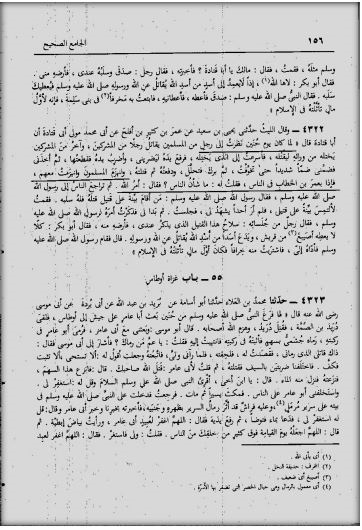 ١٥٦ الجامع الصحيح
وسلم مثله ، فقمت ، فقال : مالك يا أبا قتادة ؟ فأخبرته ، فقال رجل : صدق وسلبه عندى ، فأرضه منى .
فقال أبو بكر : لاها الله(١) ، إذاً لا يعمد إلى أسد من أسد الله يقاتل عن الله ورسوله صلى الله عليه وسلم فيعطيك
سلبه . فقال النبى صلى الله عليه وسلم : صدق فأعطه ، فأعطانيه ، فابتعت به مخرفاً(٢) فى بنى سلمة ، فإنه لأول
مال تأثلته فى الإسلام »
٤٣٢٢ ـ وقال الليث حدثنى يحيى بن سعيد عن عمر بن كثير بن أفلح عن أبى محمد مولى أبى قتادة أن
أبا قتادة قال « لما كان يوم حنين نظرت إلى رجل من المسلمين يقاتل رجلا من المشركين ، وآخر من المشركين
يختله من ورائه ليقتله ، فأسرعت إلى الذى يختله ، فرفع يده ليضربنى ، وأضرب يده فقطعتها ، ثم أخذنى
فضمنى ضماً شديداً حتى تخوفت ، ثم ترك ، فتحلل ، ودفعته ثم قتلته ، وانهزم المسلمون وانهزمت معهم ،
فإذا بعمر بن الخطاب فى الناس ، فقلت له : ما شأن الناس ؟ فقال : أمر الله . ثم تراجع الناس إلى رسول الله
صلى الله عليه وسلم ، فقال رسول الله صلى الله عليه وسلم : من أقام بينة على قتيل قتله فله سلبه . فقمت
لألتمس بينة على قتيلى ، فلم أر أحداً يشهد لى ، فجلست . ثم بدا لى فذكرت أمره لرسول الله صلى الله عليه
وسلم ، فقال رجل من جلسائه : سلاح هذا القتيل الذى يذكر عندى ، فأرضه منه ، فقال أبو بكر : كلا
لا يعطه أصيبغ(٣) من قريش ، ويدع أسداً من أسد الله يقاتل عن الله ورسوله . قال فقام رسول الله صلى الله عليه
وسلم فأداه إلى ، فاشتريت منه خرافاً فكان أول مال تأثلته فى الإسلام »
٥٥ ـ باب غزاة أوطاس
٤٣٢٣ ـ حدثنا محمد بن العلاء حدثنا أبو أسامة عن بريد بن عبد الله عن أبى بردة عن أبى موسى
رضى الله عنه قال « لما فرغ النبى صلى الله عليه وسلم من حنين بعث أبا عامر على جيش إلى أوطاس ، فلقى
دريد بن الصمة ، فقتل دريد ، وهزم الله أصحابه . قال أبو موسى : وبعثنى مع أبى عامر ، فرمى أبو عامر فى
ركبته ، رماه جشمى بسهم فأثبته فى ركبته فانتهيت إليه فقلت : يا عم من رماك ؟ فأشار إلى أبى موسى فقال :
ذاك قاتلى الذى رمانى ، فقصدت له ، فلحقته ، فلما رآنى ولى ، فاتبعته وجعلت أقول له : ألا تستحى ألا تثبت
فكف . فاختلفنا ضربتين بالسيف فقتلته ، ثم قلت لأبى عامر : قتل الله صاحبك . قال : فانزع هذا السهم ،
فنزعته فنزا منه الماء . قال : يا ابن أخى ، أقرئ النبى صلى الله عليه السلام وقل له : استغفر لى .
واستخلفنى أبو عامر على الناس . فمكث يسيراً ثم مات . فرجعت فدخلت على النبى صلى الله عليه وسلم فى
بيته على سرير مرمل(٤) وعليه فراش قد أثر رمال السرير بظهره وجنبيه ، فأخبرته بخبرنا وخبر أبى عامر وقال : قل
له استغفر لى ، فدعا بماء فتوضأ ، ثم رفع يديه فقال : اللهم اغفر لعبيد أبى عامر ، ورأيت بياض إبطيه . ثم
قال : اللهم اجعله يوم القيامة فوق كثير من خلقك من الناس . فقلت : ولى فاستغفر . فقال : اللهم اغفر لعبد
(١) أى بأى الله .
(٢) المخرف : حديقة النخل .
(٣) أصيبغ أى ضعيف .
(٤) أى معمول بالرمال وهى حبال الحصر التى تضفر بها الأسرة .